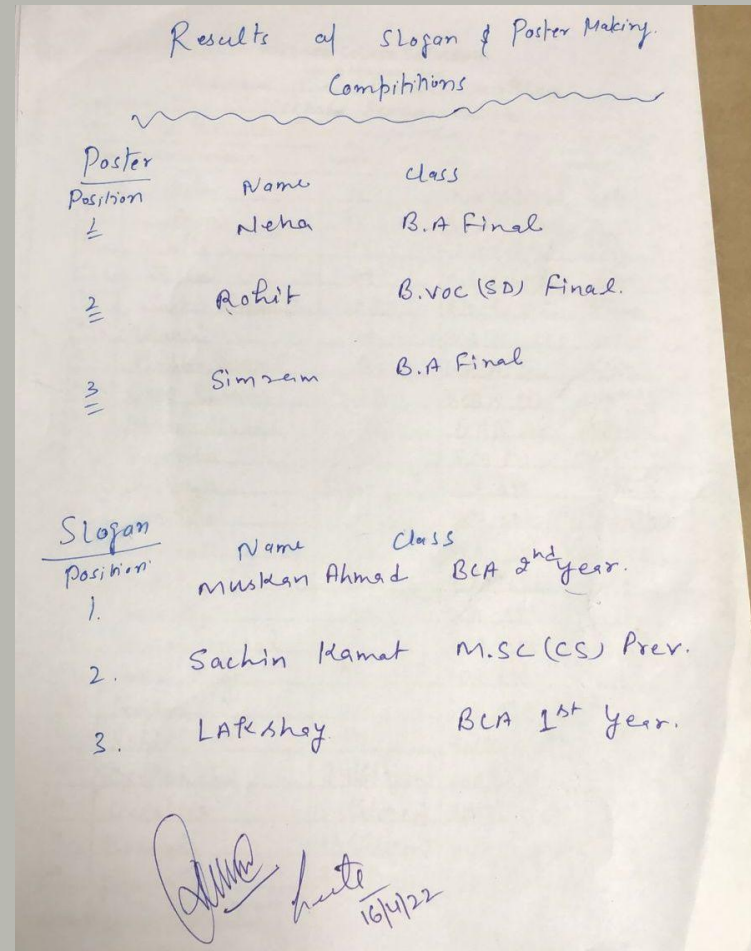 Results of Slogan & Poster Making.
Compititions
Poster
Position Name Class
1 Neha B.A Final
2 Rohit B.voc (SD) Final.
3 Simran B.A Final
Slogan
Position Name Class
1. Muskan Ahmad BCA 2nd year.
2. Sachin Kamat M.SC (CS) Prev.
3. LAKshay BCA 1st Year.
16/4/22